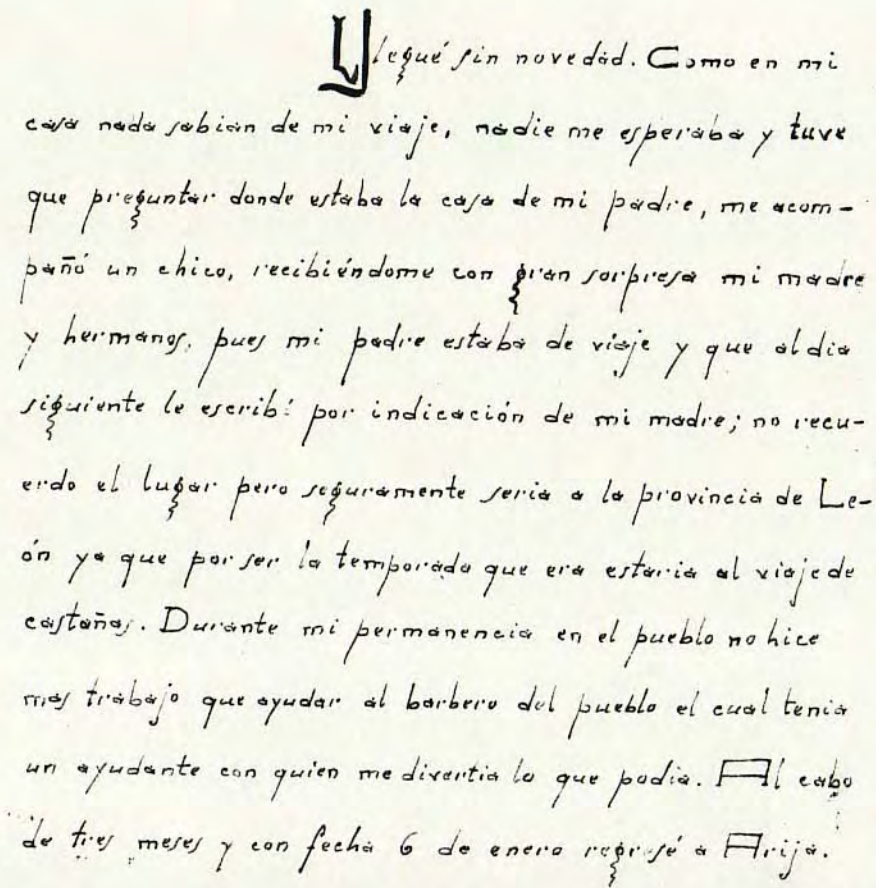 Llegué sin novedad. Como en mi
casa nada sabian de mi viaje, nadie me esperaba y tuve
que preguntar donde estaba la casa de mi padre, me acom-
pañó un chico, recibiéndome con gran sorpresa mi madre
y hermanos, pues mi padre estaba de viaje y que al dia
siguiente le escribí por indicación de mi madre; no recu-
erdo el lugar pero seguramente seria a la provincia de Le-
ón ya que por ser la temporada que era estaria al viaje de
castañas. Durante mi permanencia en el pueblo no hice
mas trabajo que ayudar al barbero del pueblo el cual tenia
un ayudante con quien me divertia lo que podia. Al cabo
de tres meses y con fecha 6 de enero regresé a Arija.